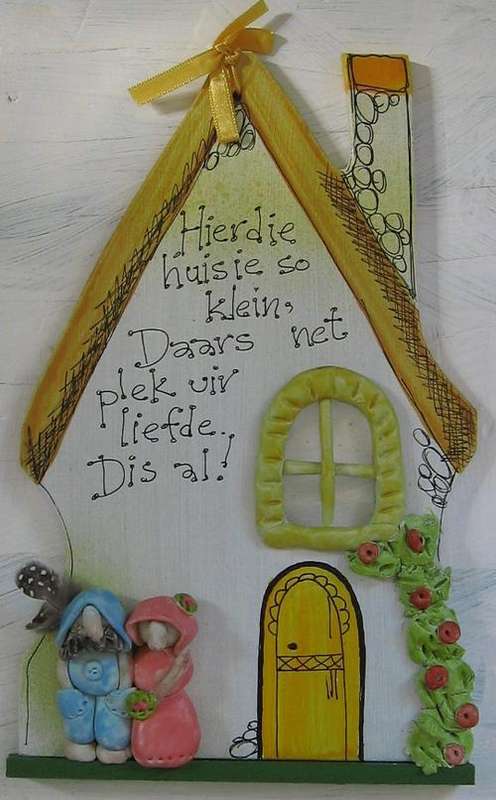 Hierdie
huisie so
klein,
Daars net
plek vir
liefde.
Dis al!